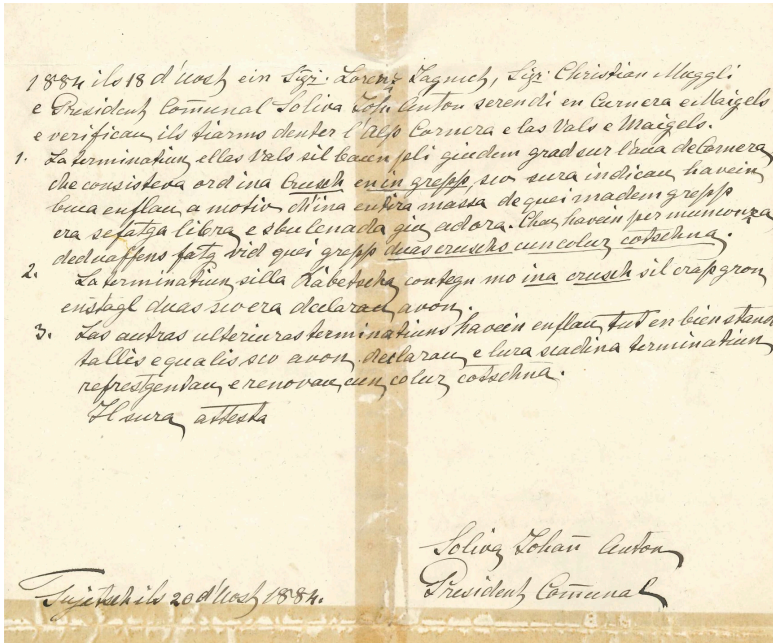 1884 ils 18 d'Uost ein Sigr. Lorenz Jagmet, Sigr. Christian Muggli
e President Com̄unal Soliva Joh. Anton serendi en Curnera e Maigels
e verificau ils tiarms denter l'Alp Cornera e las Vals e Maigels.
1. La terminatiun ellas Vals sil baun pli giudem grad sur l'aua de Cornera
che consisteva ord ina Crusch en in grepp, sco sura indicau havein
buca enflau a motiv ch'ina entira massa de quei madem grepp
era sefatga libra e sbulenada giu adora. Chau havein per muncanza
ded uaffens fatg vid quei grepp duas cruschs cun colur cotschna.
2. La terminatiun silla Rabetscha contegn mo ina crusch sil crap gron
enstagl duas sco era declarau avon.
3. Las autras ulteriuras terminatiuns havein enflau tut en bien stand
tallès equalis sco avon declarau e lura scadina terminatiun
refrestgentau e renovau cun colur cotschna.
Il sura attesta
Soliva Johan̄ Anton
Tujetsch ils 20 d'Uost 1884.
President Com̄unal